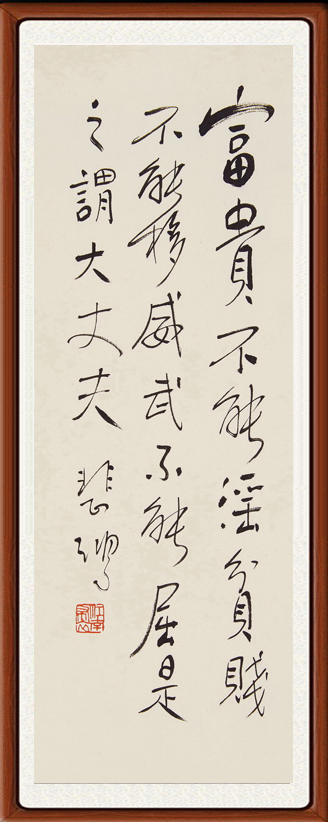 富貴不能淫貧賤
不能移威武不能屈是
之謂大丈夫
悲鴻